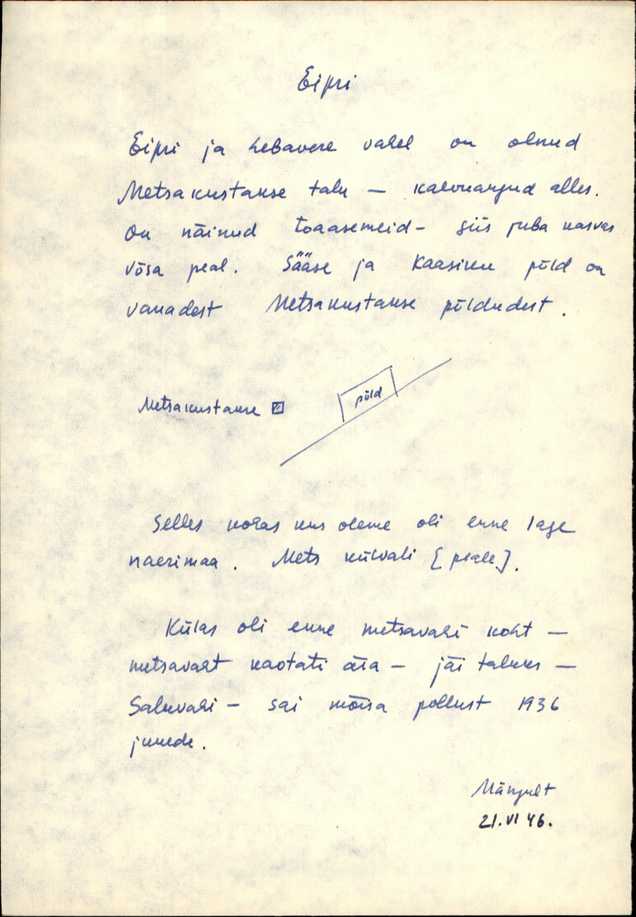 Eipri
Eipri ja Lebavere vahel on olnud
Metsakustanse talu — kaevuargud alles.
On näinud toaasemeid – siis juba kasvas
võsa peal. Sääse ja Kaasiku põld on
vanadest Metsakustanse põldudest.
Metsakustanse
põld
Selles kohas kus oleme oli enne lage
kaerimaa. Mets külvati [peale].
Külas oli enne metsavahi koht —
metsavaht kaotati ära — jäi taluks —
Saluvahi — sai mõisa põllust 1936
juurde.
21. VI 46.